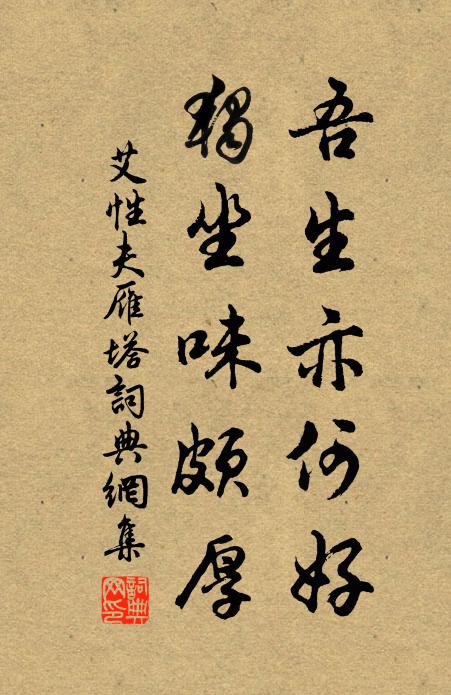 吾生亦何好
獨坐味頗厚
艾性夫雁塔詞典網集
詞典網印